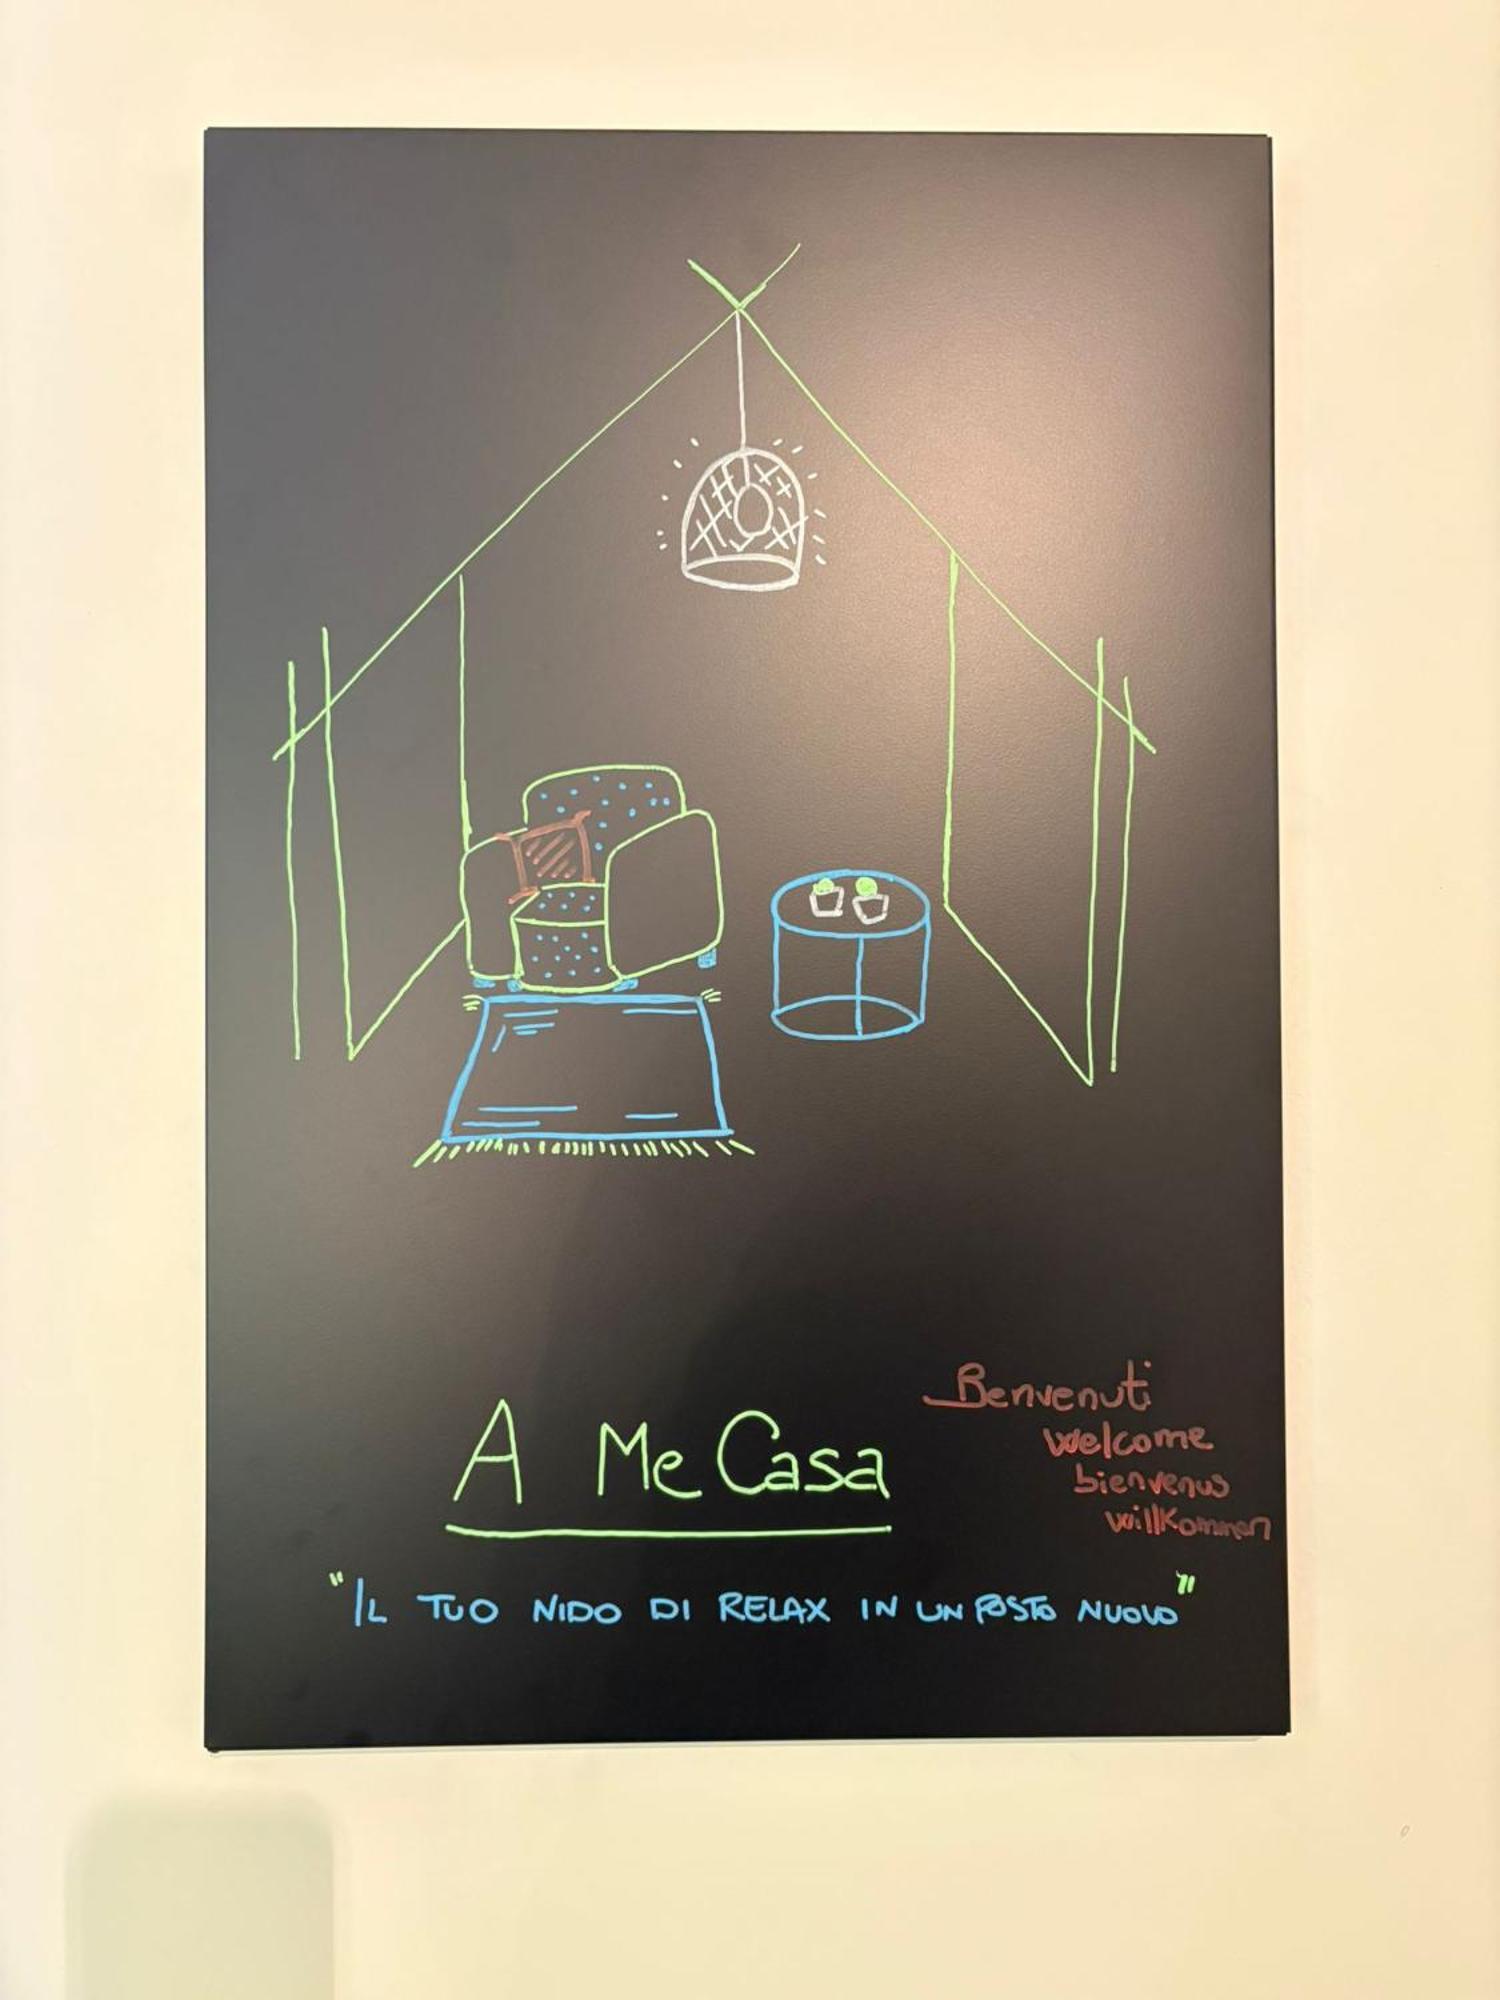 A Me Casa
Benvenuti
Welcome
bienvenus
willkommen
"IL TUO NIDO DI RELAX IN UN POSTO NUOVO"